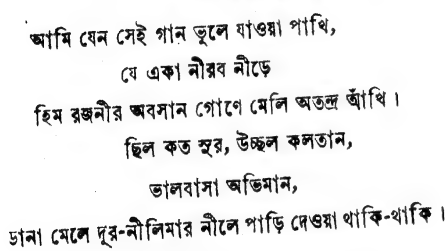 আমি যেন সেই গান ভুলে যাওয়া পাখি,
যে একা নীরব নীড়ে
হিম রজনীর অবসান গোণে মেলি অতন্দ্র আঁখি ।
ছিল কত সুর, উচ্ছল কলতান,
ভালবাসা অভিমান,
ডানা মেলে দূর-নীলিমার নীলে পাড়ি দেওয়া থাকি-থাকি ।